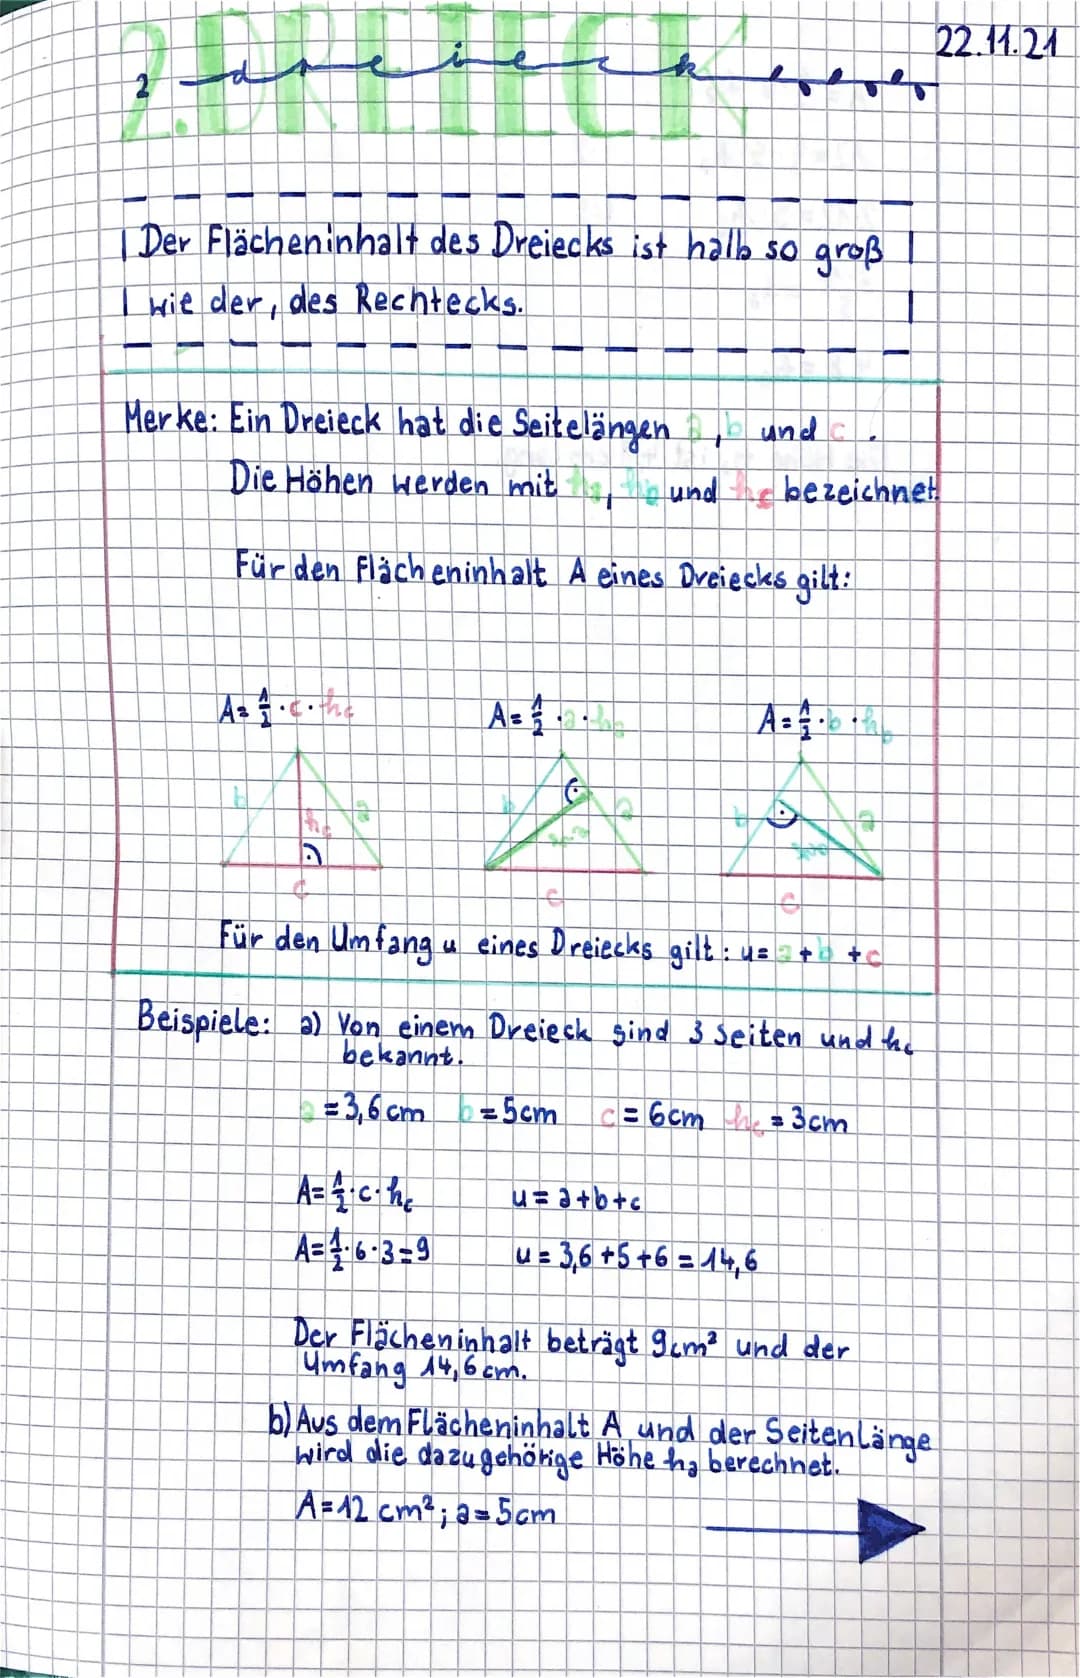 22.11.21
2. DREIECK
2 dreieck
Der Flächeninhalt des Dreiecks ist halb so groß
wie der, des Rechtecks.
Merke: Ein Dreieck hat die Seitelängen a, b und c.
Die Höhen werden mit ha, hb und hc bezeichnet.
Für den Flächeninhalt A eines Dreiecks gilt:
A=1/2·c·hc A=1/2·a·ha A=1/2·b·hb
b hc a b a b a
c c c
Für den Umfang u eines Dreiecks gilt: u=a+b+c
Beispiele: a) Von einem Dreieck sind 3 Seiten und hc
bekannt.
a=3,6cm b=5cm c=6cm hc=3cm
A=1/2·c·hc u=a+b+c
A=1/2·6·3=9 u=3,6+5+6=14,6
Der Flächeninhalt beträgt 9cm² und der
Umfang 14,6cm.
b) Aus dem Flächeninhalt A und der Seitenlänge
wird die dazugehörige Höhe ha berechnet.
A=12 cm²; a=5cm